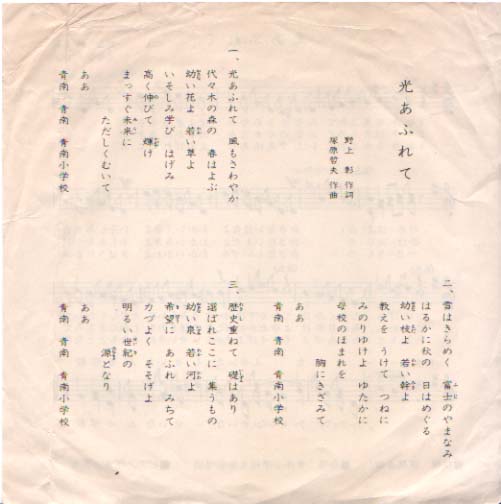 光あふれて
野上 彰 作詞
塚原哲夫 作曲
一、光あふれて 風もさわやか
代々木の森の 春はよぶ
幼い花よ 若い草よ
いそしみ学び はげみ
高く伸びて 輝け
まっすぐ未来に
ただしくむいて
ああ
青南 青南 青南小学校
二、雪はきらめく 富士のやまなみ
はるかに秋の 日はめぐる
幼い枝よ 若い幹よ
教えを うけて つねに
みのりゆけよ ゆたかに
母校のほまれを
胸にきざみて
ああ
青南 青南 青南小学校
三、歴史重ねて 礎はあり
選ばれここに 集うもの
幼い泉 若い河よ
希望に あふれ みちて
力づよく そそげよ
明るい世紀の
源となり
ああ
青南 青南 青南小学校